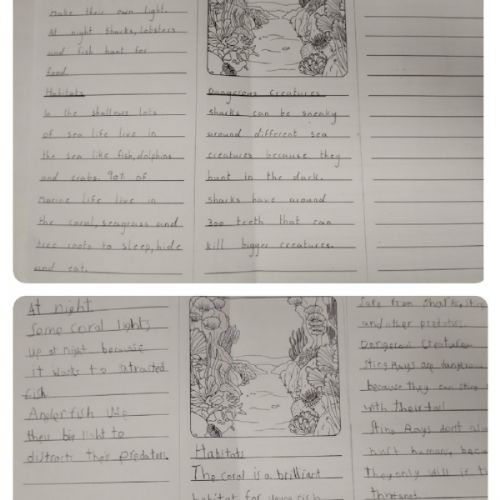 make their own light.
At night sharks, lobsters
and fish hunt for
food.
Habitats
In the shallows lots
of sea life live in
the sea like fish, dolphins
and crabs. 90% of
marine life live in
the coral, seagrass and
tree roots to sleep, hide
and eat.
Dangerous Creatures
sharks can be sneaky
around different sea
creatures because they
hunt in the dark.
sharks have around
300 teeth that can
kill bigger creatures.
At night
Some coral lights
up at night because
it wants to attracted
fish.
Anglerfish use
their big light to
distract their predators.
Habitats
The coral is a brilliant
habitat for young fish
safe from sharks,
and other predators.
Dangerous Creatures
Sting Rays are dangerous
because they can sting
with their tail
Sting Rays don't
hurt humans
They only will if